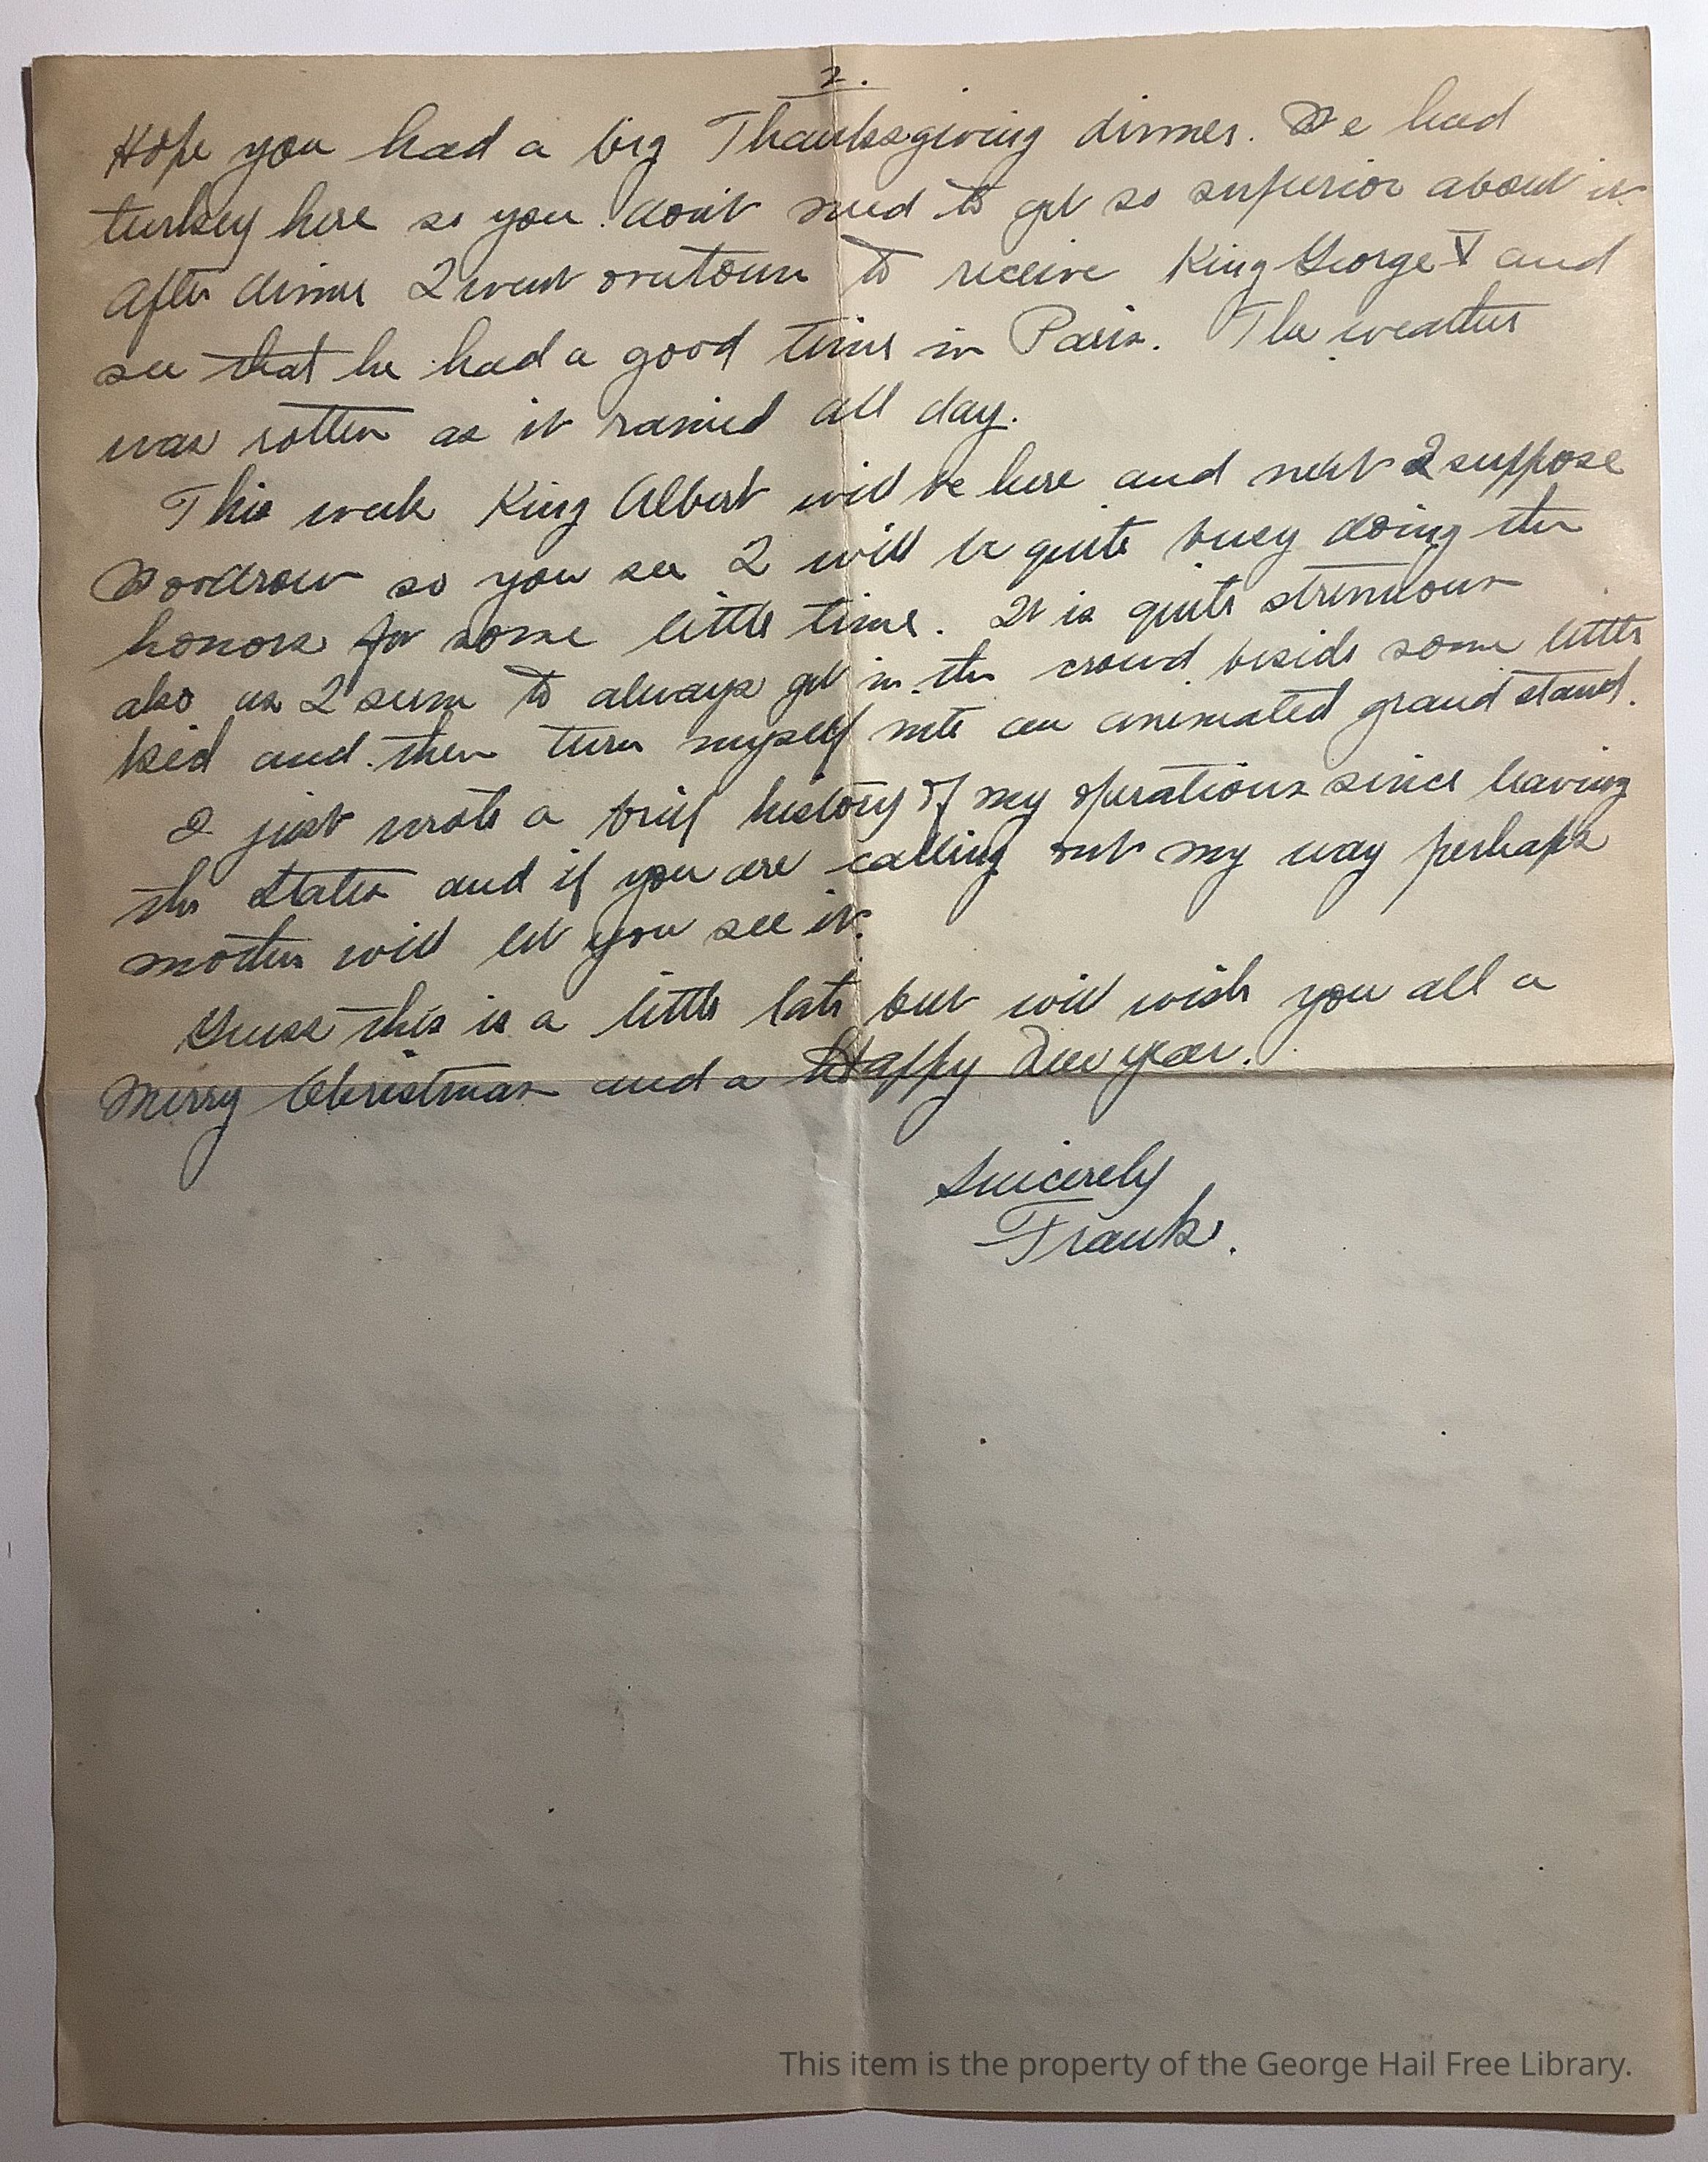 2.
Hope you had a big Thanksgiving dinner. We had
turkey here so you don't need to get so superior about it.
After dinner I went overtown to receive King George V and
see that he had a good time in Paris. The weather
was rotten as it rained all day.
This week King Albert will be here and next I suppose
Woodrow so you see I will be quite busy doing the
honors for some little time. It is quite strenuous
also as I seem to always get in the crowd beside some little
kid and then turn myself into an animated grand stand.
I just wrote a brief history of my operations since leaving
the States and if you are calling out my way perhaps
mother will let you see it.
Guess this is a little late but will wish you all a
Merry Christmas and a Happy New year.
Sincerely
Frank.
This item is the property of the George Hail Free Library.